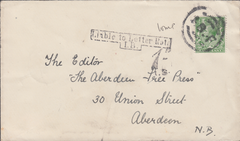 Liable to Letter Rate
I.B.
The Editor
"The Aberdeen Free Press"
30 Union Street
Aberdeen
N.B.